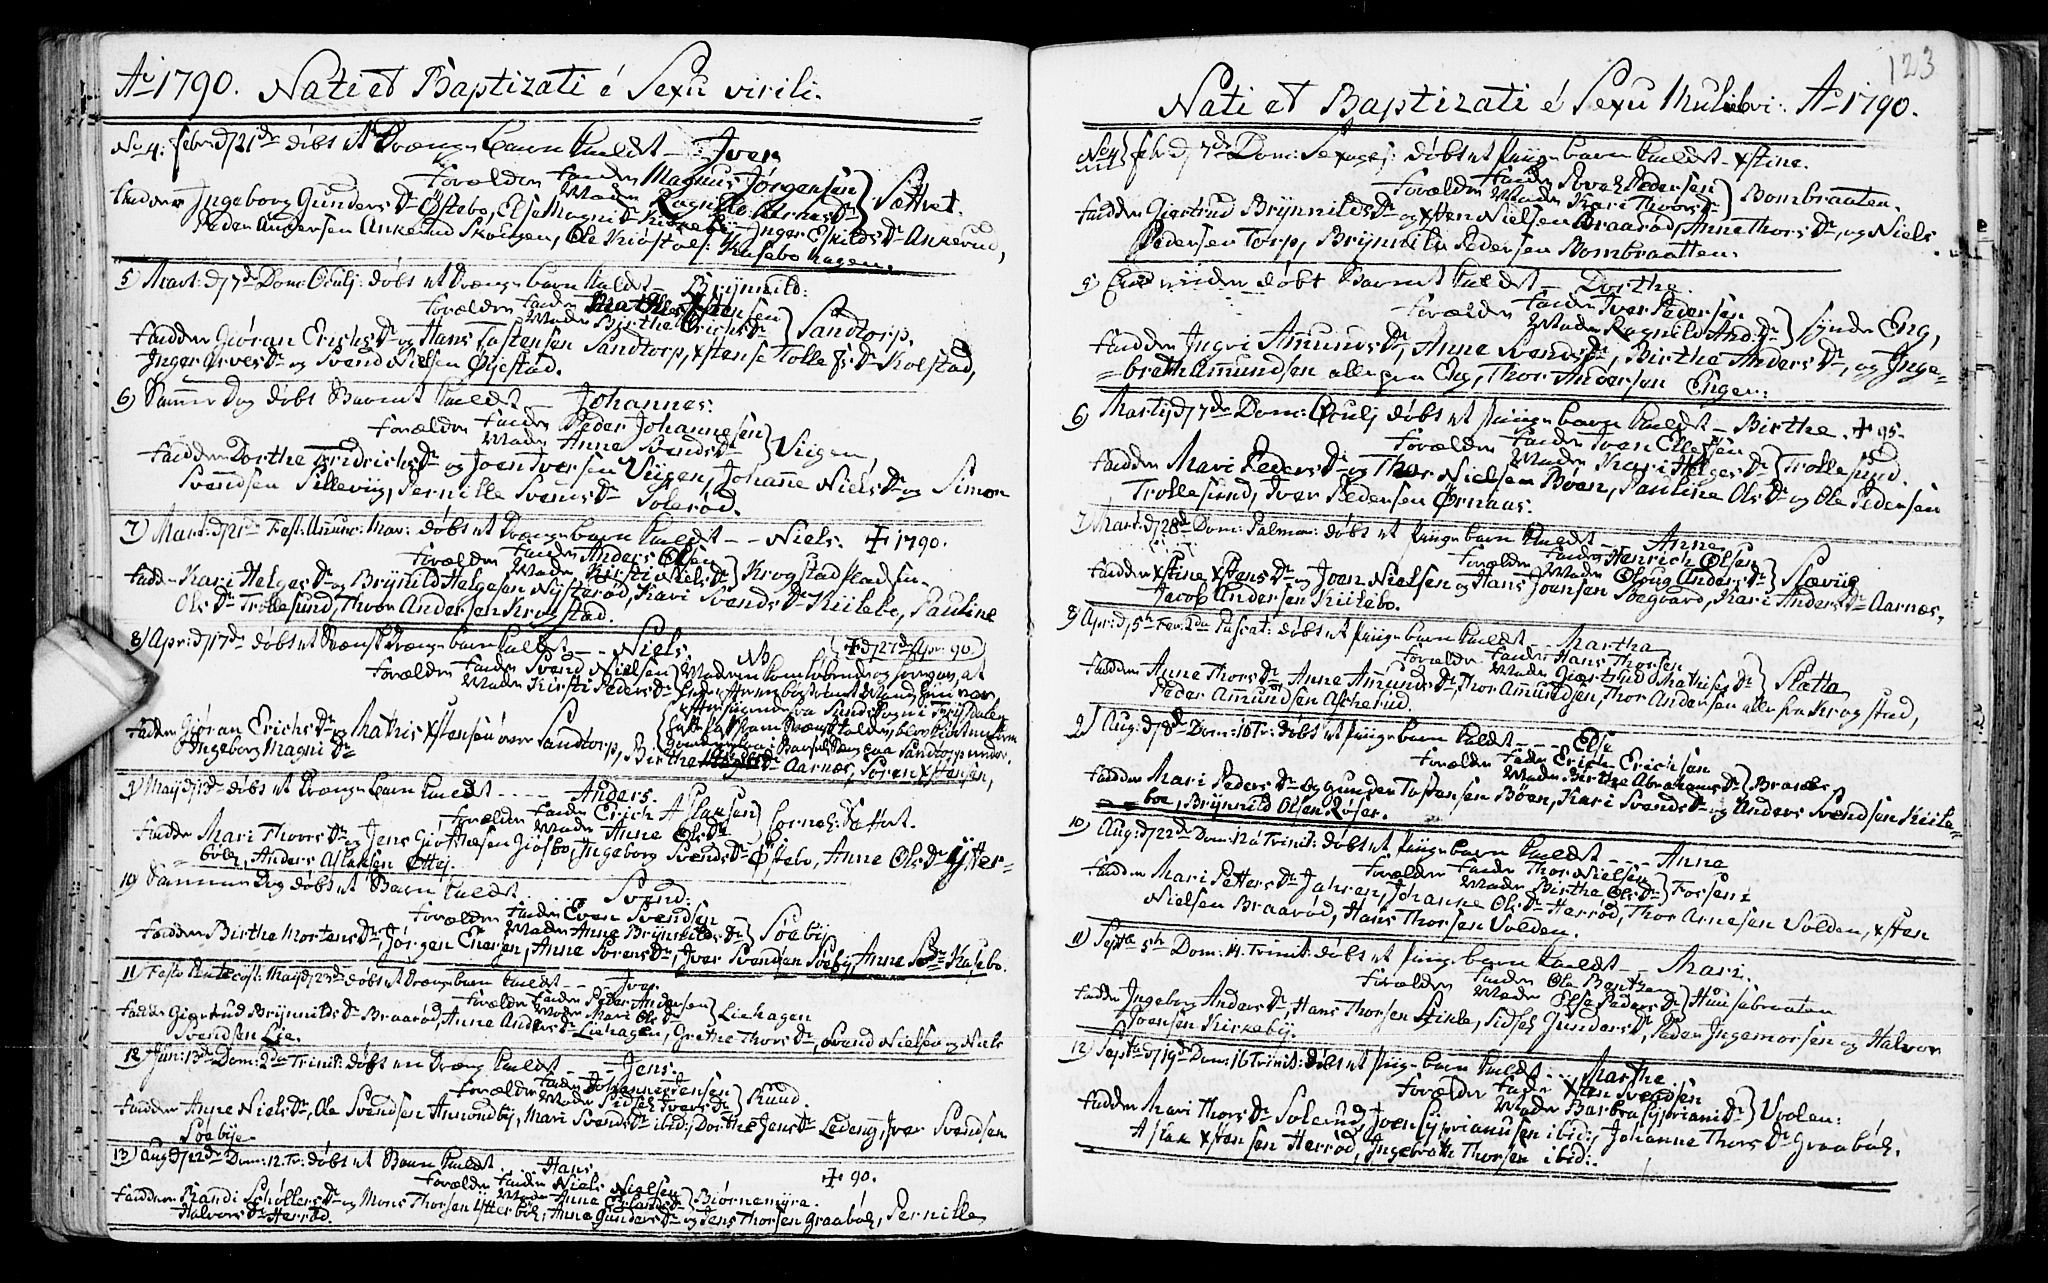 Ao 1790. Nati et Baptizati é Sexu virili.
No 4. Febr: d 21de døbt et Drænge Barn kaldt – Iver
Forældre Fader Magnus Jørgensen
Moder Ragnild Arnes Dr } Sættret.
Fadder Ingeborg Gunders Dr Østebø, Else Magni Dr Inger Eskilds Dr Ankerud,
Peder Andersen Ankerud Ole Kiøstols: Husebo hagen.
5) Mart: d 7de Dom: Oculj: døbt et Drænge barn kaldt – Brynnild:
Forældre Fader
Moder Birthe Erichs Dr } Sandtorp.
Fadder Giøran Erichs Dr og Hans Tostensen Sandtorp, Xstense Tollefs Dr Kolstad,
Inger Arves Dr og Svend Nielsen Øgestad.
6) Samme Dag døbt Barnet kaldt – Johannes:
Forældre Fader Peder Johannesen
Moder Anne Svends Dr } Viigen,
Fadder Dorthe Fridrichs Dr og Joen Iversen Viigen, Johanne Niels Dr og Simon
Svendsen Sillevig, Pernille Svends Dr Solerød.
7) Mart: d 21de Fest: Anunc: Mar: døbt et Drænge barn kaldt – – Niels. ✝ 1790.
Forældre Fader Anders Olsen
Moder Kirsti Niels Dr } Krogstad
Fadder Kari Helges Dr og Brynild Helgesen Nysterød, Kari Svends Dr Kiilebo, Pauline
Ols Dr Trollesund, Thor Andersen Krogstad.
8) Apr: d 17de døbt et Drænge barn kaldt – – Niels. NB ✝ d 27de Apr: 90.
Forældre Fader Svend Nielsen
Moder Kirsti Peders Dr
Fadder Giøran Erichs Dr og Mathis Xstensen øvre Sandtorp, Birthe Aarnæs, Søren Xstensen,
Ingeborg Magni Dr
9) Maij d døbt et Drænge barn kaldt – – – – Anders.
Forældre Fader Erich Aslaksen
Moder Anne Ols Dr
Fadder Mari Thors Dr Jens Giøsbo, Ingeborg Svends Dr Østebo, Anne Ols Dr Ytter-
bøle, Anders Aslaksen Ottej.
10) Samme Dag døbt et Barn kaldt – – – Svend.
Forældre Fader Even Svendsen
Moder Anne Brynnilds Dr } Søebÿ
Fadder Birthe Mortens Dr, Jørgen Enersen, Anne Sørens Dr, Iver Svendsen Søebÿ, Anne Kasebo.
11) Festo Pentecost: Maij d 23de døbt et Drænge barn kaldt – – –
Forældre Fader Peder Andersen
Moder Mari Ols Dr } Liehagen
Fadder Giertrud Brynnilds Dr Braarød, Anne Anders Dr Liehagen, Grethe Thors Dr, Svend Nielsen og Niels
Svendsen Lie.
12) Jun: 13de Dom: 2da Trinit: døbt en Dræng kaldt – – Jens.
Forældre Fader Johannes Jensen
Moder Sidsel Ivers Dr } Ruud.
Fadder Anne Niels Dr, Ole Svendsen Amondbÿ, Mari Svends Dr ibid: Dorthe Jens Dr Ledeng, Iver Svendsen
Søebye
13) Aug: d 22de Dom: 12 Tr: døbt et Barn kaldt – Hans ✝ 90.
Forældre Fader Niels Nielsen
Moder Anne Dr } Biørnemyra.
Fadder Randi Schøllers Dr og Mons Thorsen Ytterbøle, Anne Gunders Dr og Jens Thorsen Graabøl, Pernille
Halvors Dr Herrød.
123
Nati et Baptizati é Sexu Muliebri: Ao 1790.
No 4) Feb: d 7de Dom: Sexages: døbt et Piige barn kaldt – Xstine.
Forældre Fader Pedersen
Moder Kari Thors Dr } Bombraaten.
Fadder Giertrud Brynnilds Dr og Xsten Nielsen Braarød, Anne Thors Dr, og Niels
Pedersen Torp, Brynnild Pedersen Bombraatten.
5) døbt Barnet kaldt – Dorthe.
Forældre Fader Iver Pedersen
Moder Ragnild And: Dr } søndr Eng,
Fadder Ingri Amunds Dr, Anne Svends Dr, Birthe Anders Dr, og Inge-
breth Amundsen alle fra Eng, Thor Andersen Enger.
6) Martij d 7de Dom: Oculj døbt et Piige barn kaldt – Birthe. ✝ 95.
Forældre Fader Iven Ellefsen
Moder Kari Helges Dr } Trollesund.
Fadder Mari Peders Dr og Thor Nielsen Bøen, Pauline Ols Dr og Ole Pedersen
Trollesund, Iver Pedersen Ørnaas.
7) Mart: d 28de Dom: Palmar: døbt et Piige barn kaldt – Anne
Forældre Fader Henrich Olsen
Moder Oloug Anders Dr } Slævig
Fadder Xstine Xstens Dr og Joen Nielsen og Hans Joensen Soegaard, Kari Anders Dr Aarnæs,
Jacob Andersen Kiilebo.
8) Apr: d 5te Fer: 2da Pascat: døbt et Piige barn kaldt – Martha
Forældre Fader Hans Thorsen
Moder Giertrud Mathises Dr } Slætta
Fadder Anne Thors Dr, Anne Amunds Dr, Thor Amundsen, Thor Andersen alle fra Krogstad,
Peder Amundsen Ascherud.
9) Aug: d 8de Dom: 10 Tr: døbt et Piige barn kaldt – – – Else
Forældre Fader Erich Erichsen
Moder Birthe Abrahams Dr }
Fadder Mari Peders Dr og Gunder Tostensen Bøen, Kari Svends Dr og Anders Svendsen Kiile-
boe, Brynnild Olsen Røser.
10) Aug: d 22de Dom: 12 Trinit: døbt et Piige barn kaldt – – – Anne
Forældre Fader Thor Nielsen
Moder Birthe Ols Dr } Forsen:
Fadder Mari Petters Dr Jahren, Johanne Ols Dr Herrød, Thor Arnesen Volden, Xsten
Nielsen Braarød, Hans Thorsen Volden.
11) Septr 5te Dom: 14 Trinit: døbt et Piige barn kaldt – Mari.
Forældre Fader Ole
Moder Else Peders Dr } Huusebraaten
Fadder Ingeborg Anders Dr, Hans Thorsen Stikle, Sidsel Gunders Dr, Peder Ingemorsen og Halvor
Joensen Kirkebÿ.
12) Septr d 19de Dom: 16 Trinit: døbt et Piige barn kaldt – – – Marthe
Forældre Fader Xsten Svendsen
Moder Barbra Cyprians Dr } Vvolen:
Fadder Mari Thors Dr Solerud, Joen Syprianusen ibid:, Johanne Thors Dr Graabøl,
Aslak Xstensen Herrød, Ingebreth Thorsen ibid:.